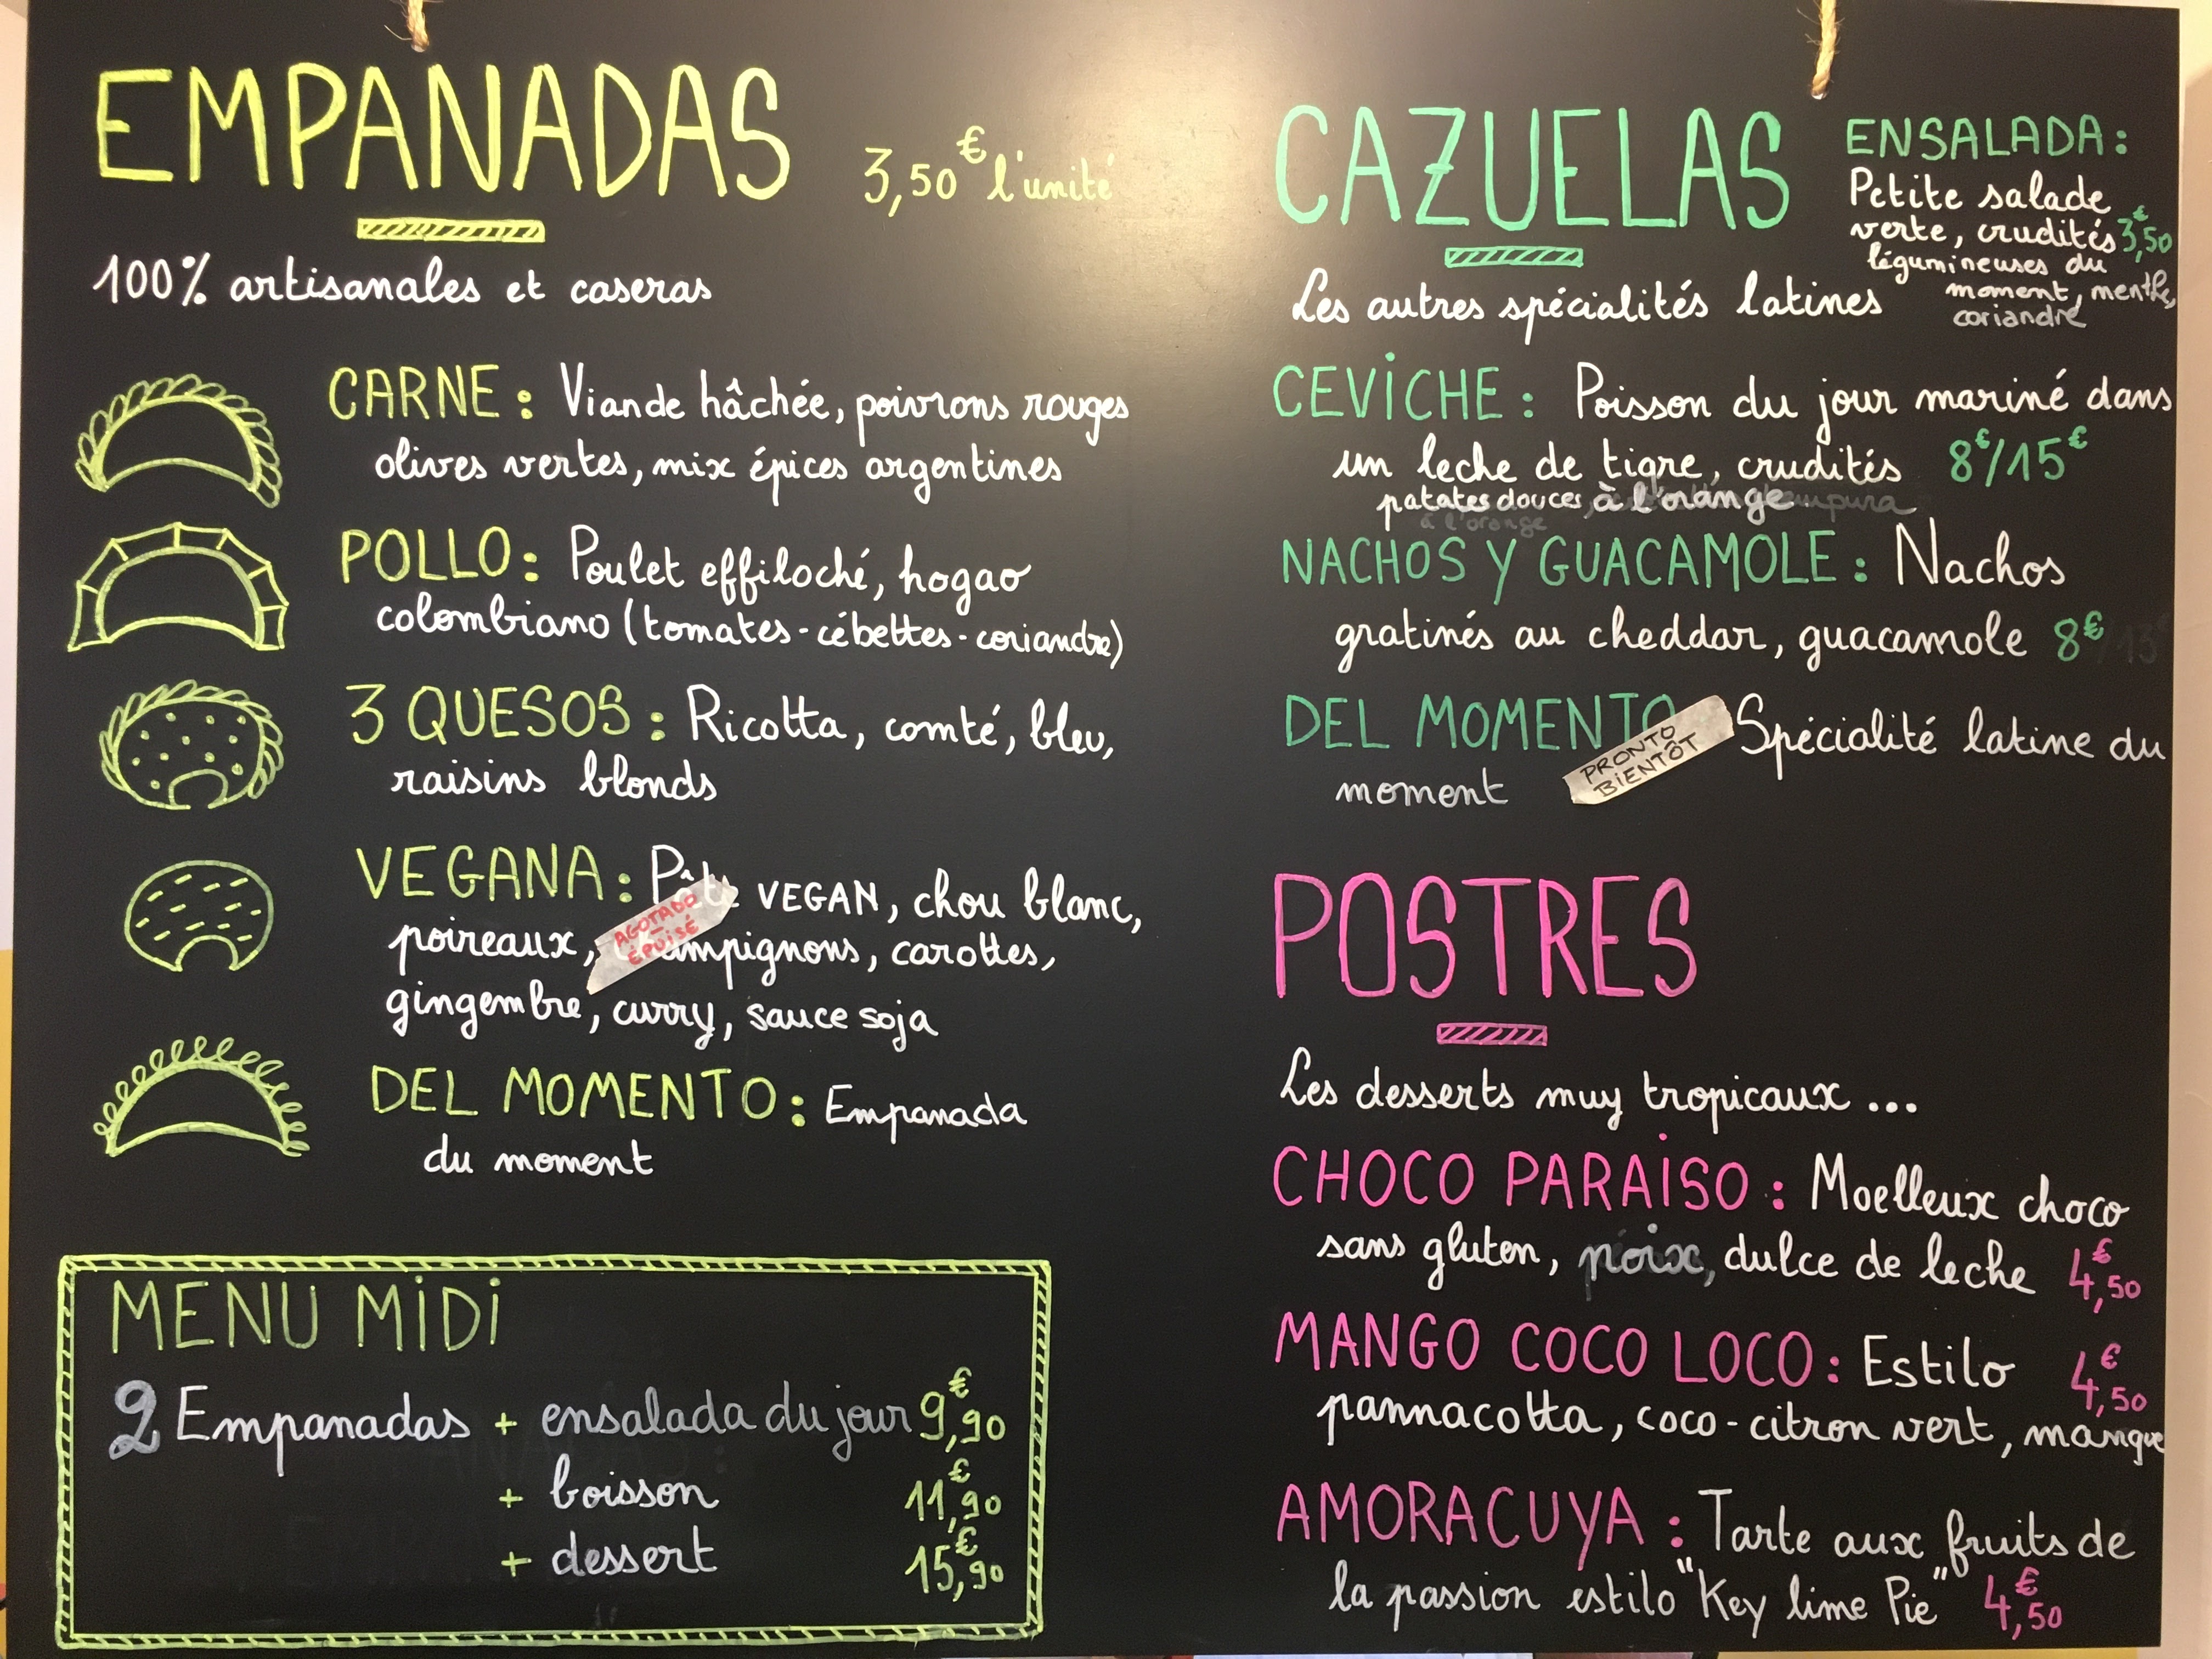 EMPANADAS 3,50€ l'unité
100% artisanales et caseras
CARNE : Viande hâchée, poivrons rouges
olives vertes, mix épices argentines
POLLO : Poulet effiloché, hogao
colombiano (tomates-cébettes-coriandre)
3 QUESOS : Ricotta, comté, bleu,
raisins blonds
VEGANA : Pâte VEGAN, chou blanc,
AGOTADO
ÉPUISÉ
poireaux, champignons, carottes,
gingembre, curry, sauce soja
DEL MOMENTO : Empanada
du moment
MENU MIDI
2 Empanadas + ensalada du jour 9,90€
+ boisson 11,90€
+ dessert 15,90€
CAZUELAS
Les autres spécialités latines
ENSALADA :
Petite salade
verte, crudités 3,50€
légumineuses du
moment, menthe,
coriandre
CEVICHE : Poisson du jour mariné dans
un leche de tigre, crudités 8€/15€
patates douces, à l'orange
NACHOS Y GUACAMOLE : Nachos
gratinés au cheddar, guacamole 8€
DEL MOMENTO Spécialité latine du
moment
PRONTO
BIENTÔT
POSTRES
Les desserts muy tropicaux ...
CHOCO PARAISO : Moelleux choco
sans gluten, noix, dulce de leche 4,50€
MANGO COCO LOCO : Estilo 4,50€
pannacotta, coco-citron vert, mangue
AMORACUYA : Tarte aux fruits de
la passion estilo "Key lime Pie" 4,50€